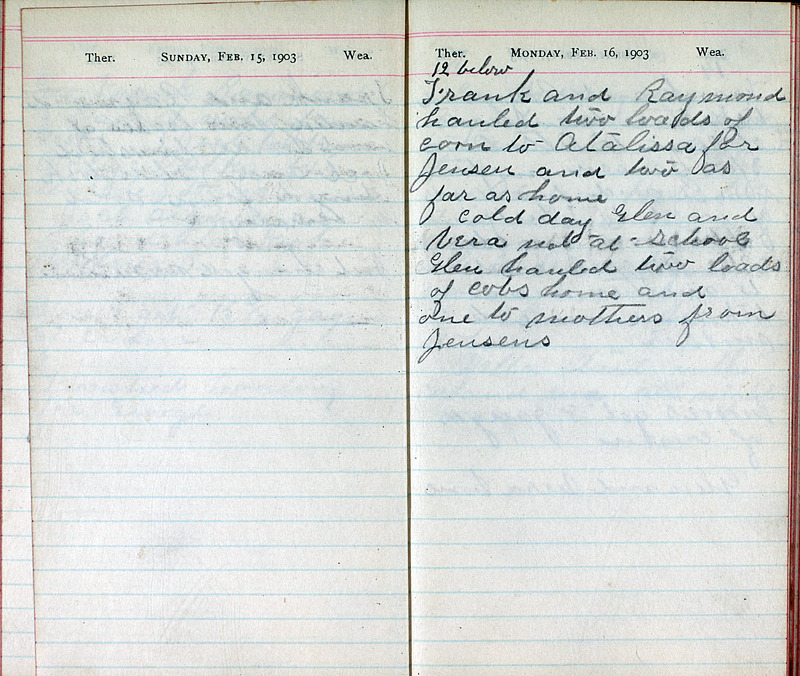 Ther. SUNDAY, FEB. 15, 1903 Wea.
Ther. MONDAY, FEB. 16, 1903 Wea.
12 below
Frank and Raymond
hauled two loads of
corn to Atalissa for
Jensen and two as
far as home
cold day Glen and
Vera not at School
Glen hauled two loads
of cobs home and
one to mothers from
Jensens